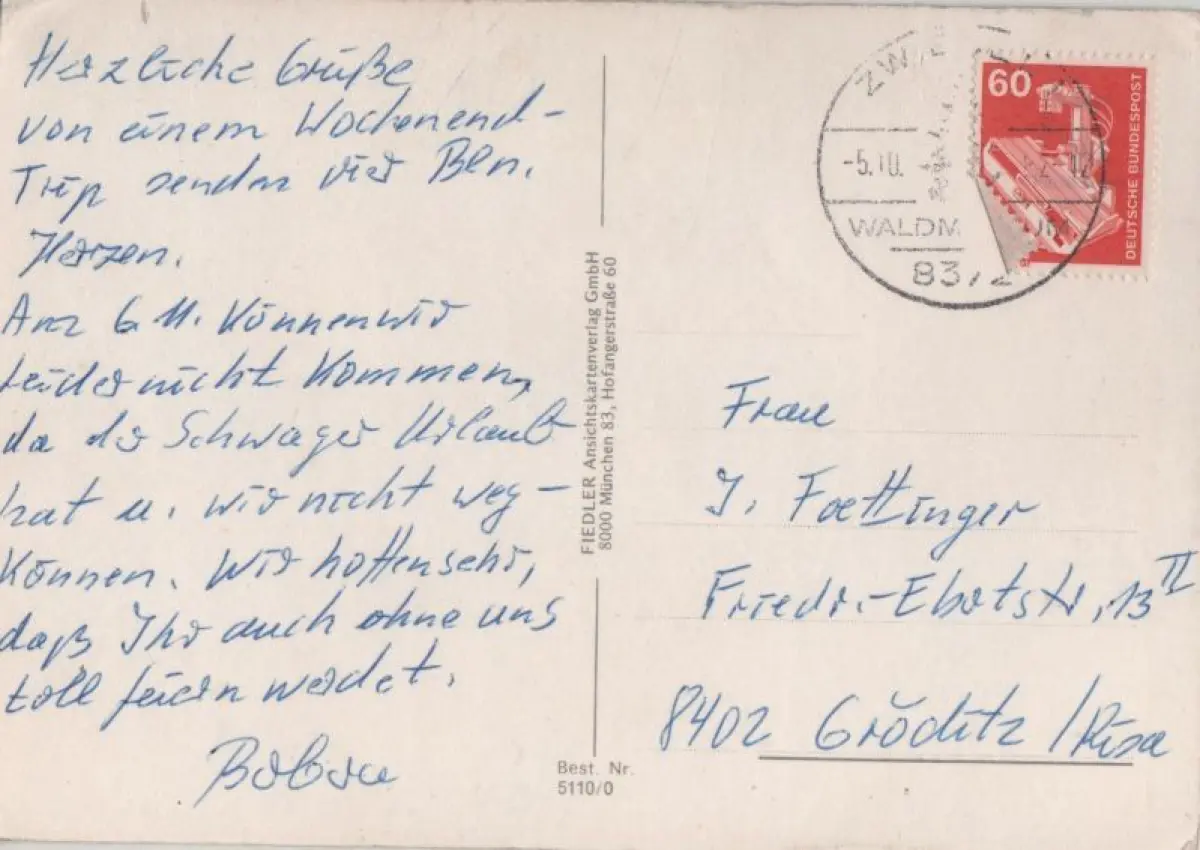 Herzliche Grüße
von einem Wochenend-
Trip senden vier Bln.
Herzen.
Am 6.11. können wir
leider nicht kommen,
da der Schwager Urlaub
hat u. wir nicht weg-
können. Wir hoffen sehr,
daß Ihr auch ohne uns
toll feiern werdet.
FIEDLER Ansichtskartenverlag GmbH
8000 München 83, Hofangerstraße 60
Best. Nr.
5110/0
60
DEUTSCHE BUNDESPOST
-5.10.
WALDM
Frau
J. Foettinger
Friedr.-Ebertstr. 13 II
8402 Gröditz / Risa